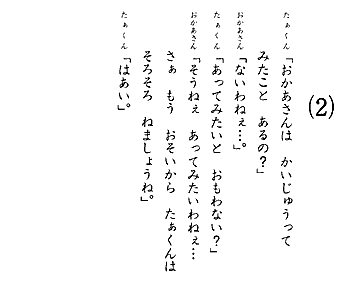 (2)
たぁくん「おかあさんは　かいじゅうって
みたこと　あるの？」
おかあさん「ないわねぇ…。」
たぁくん「あってみたいと　おもわない？」
おかあさん「そうねぇ　あってみたいわねぇ…
さぁ　もう　おそいから　たぁくんは
そろそろ　ねましょうね。」
たぁくん「はあい。」